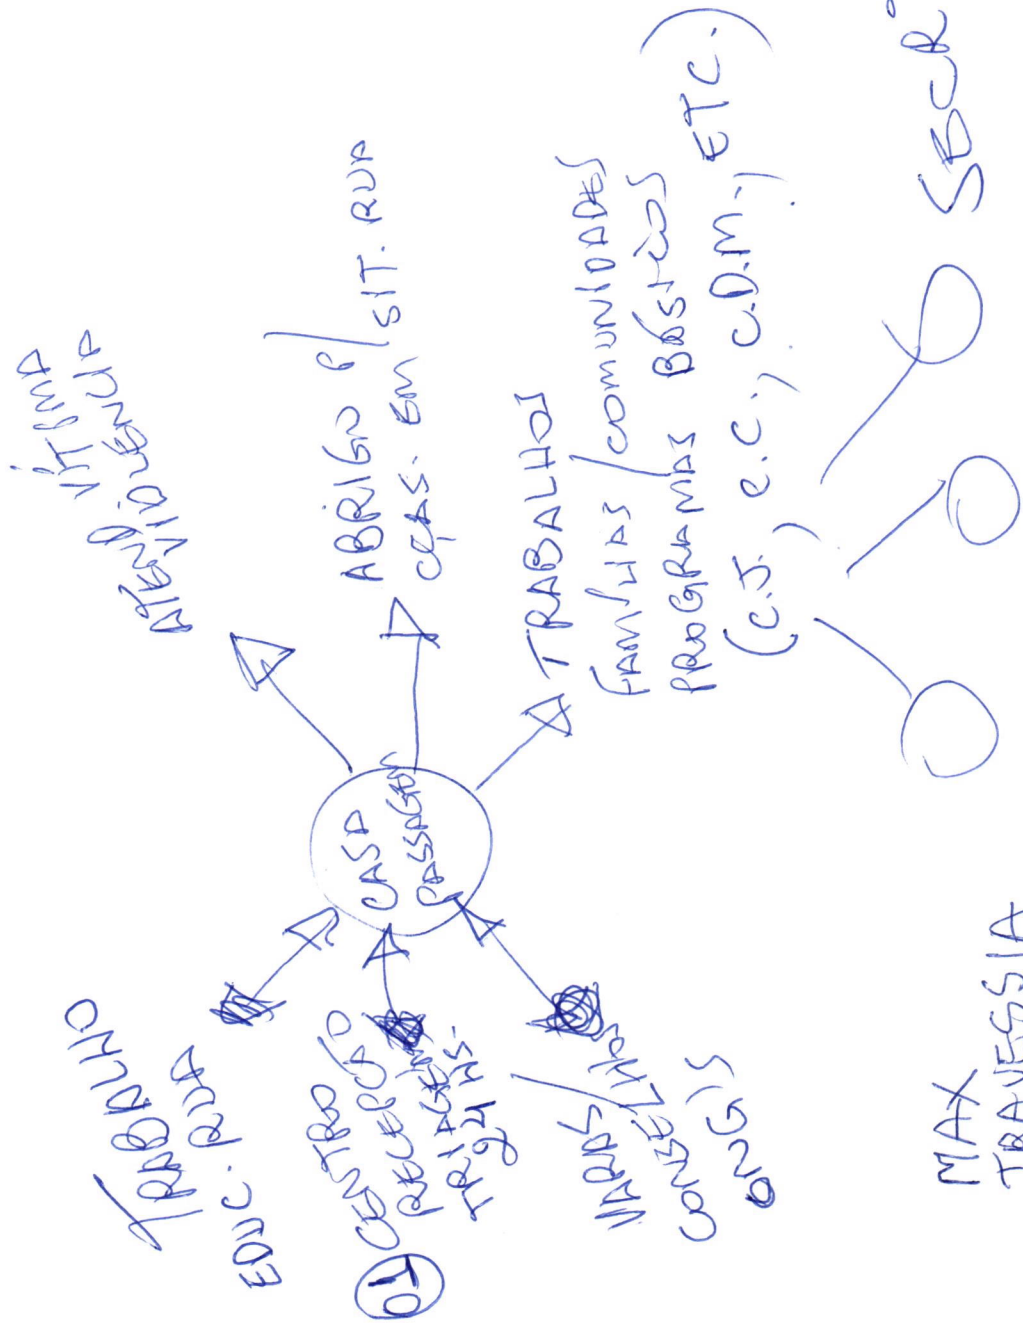 TRABALHO
EDUC. RUA
01 CENTRO
RECEPÇÃO
TRIAGEM
24 HS.
VARAS /
CONSELHOS
ONG'S
CASA
PASSAGEM
ATEND. VÍTIMA
VIOLÊNCIA
ABRIGO P/
CÇAS. EM SIT. RUA
TRABALHOS
FAMÍLIAS / COMUNIDADES
PROGRAMAS BÁSICOS
(C.J., C.C., C.D.M., ETC.)
MAX
TRAVESSIA